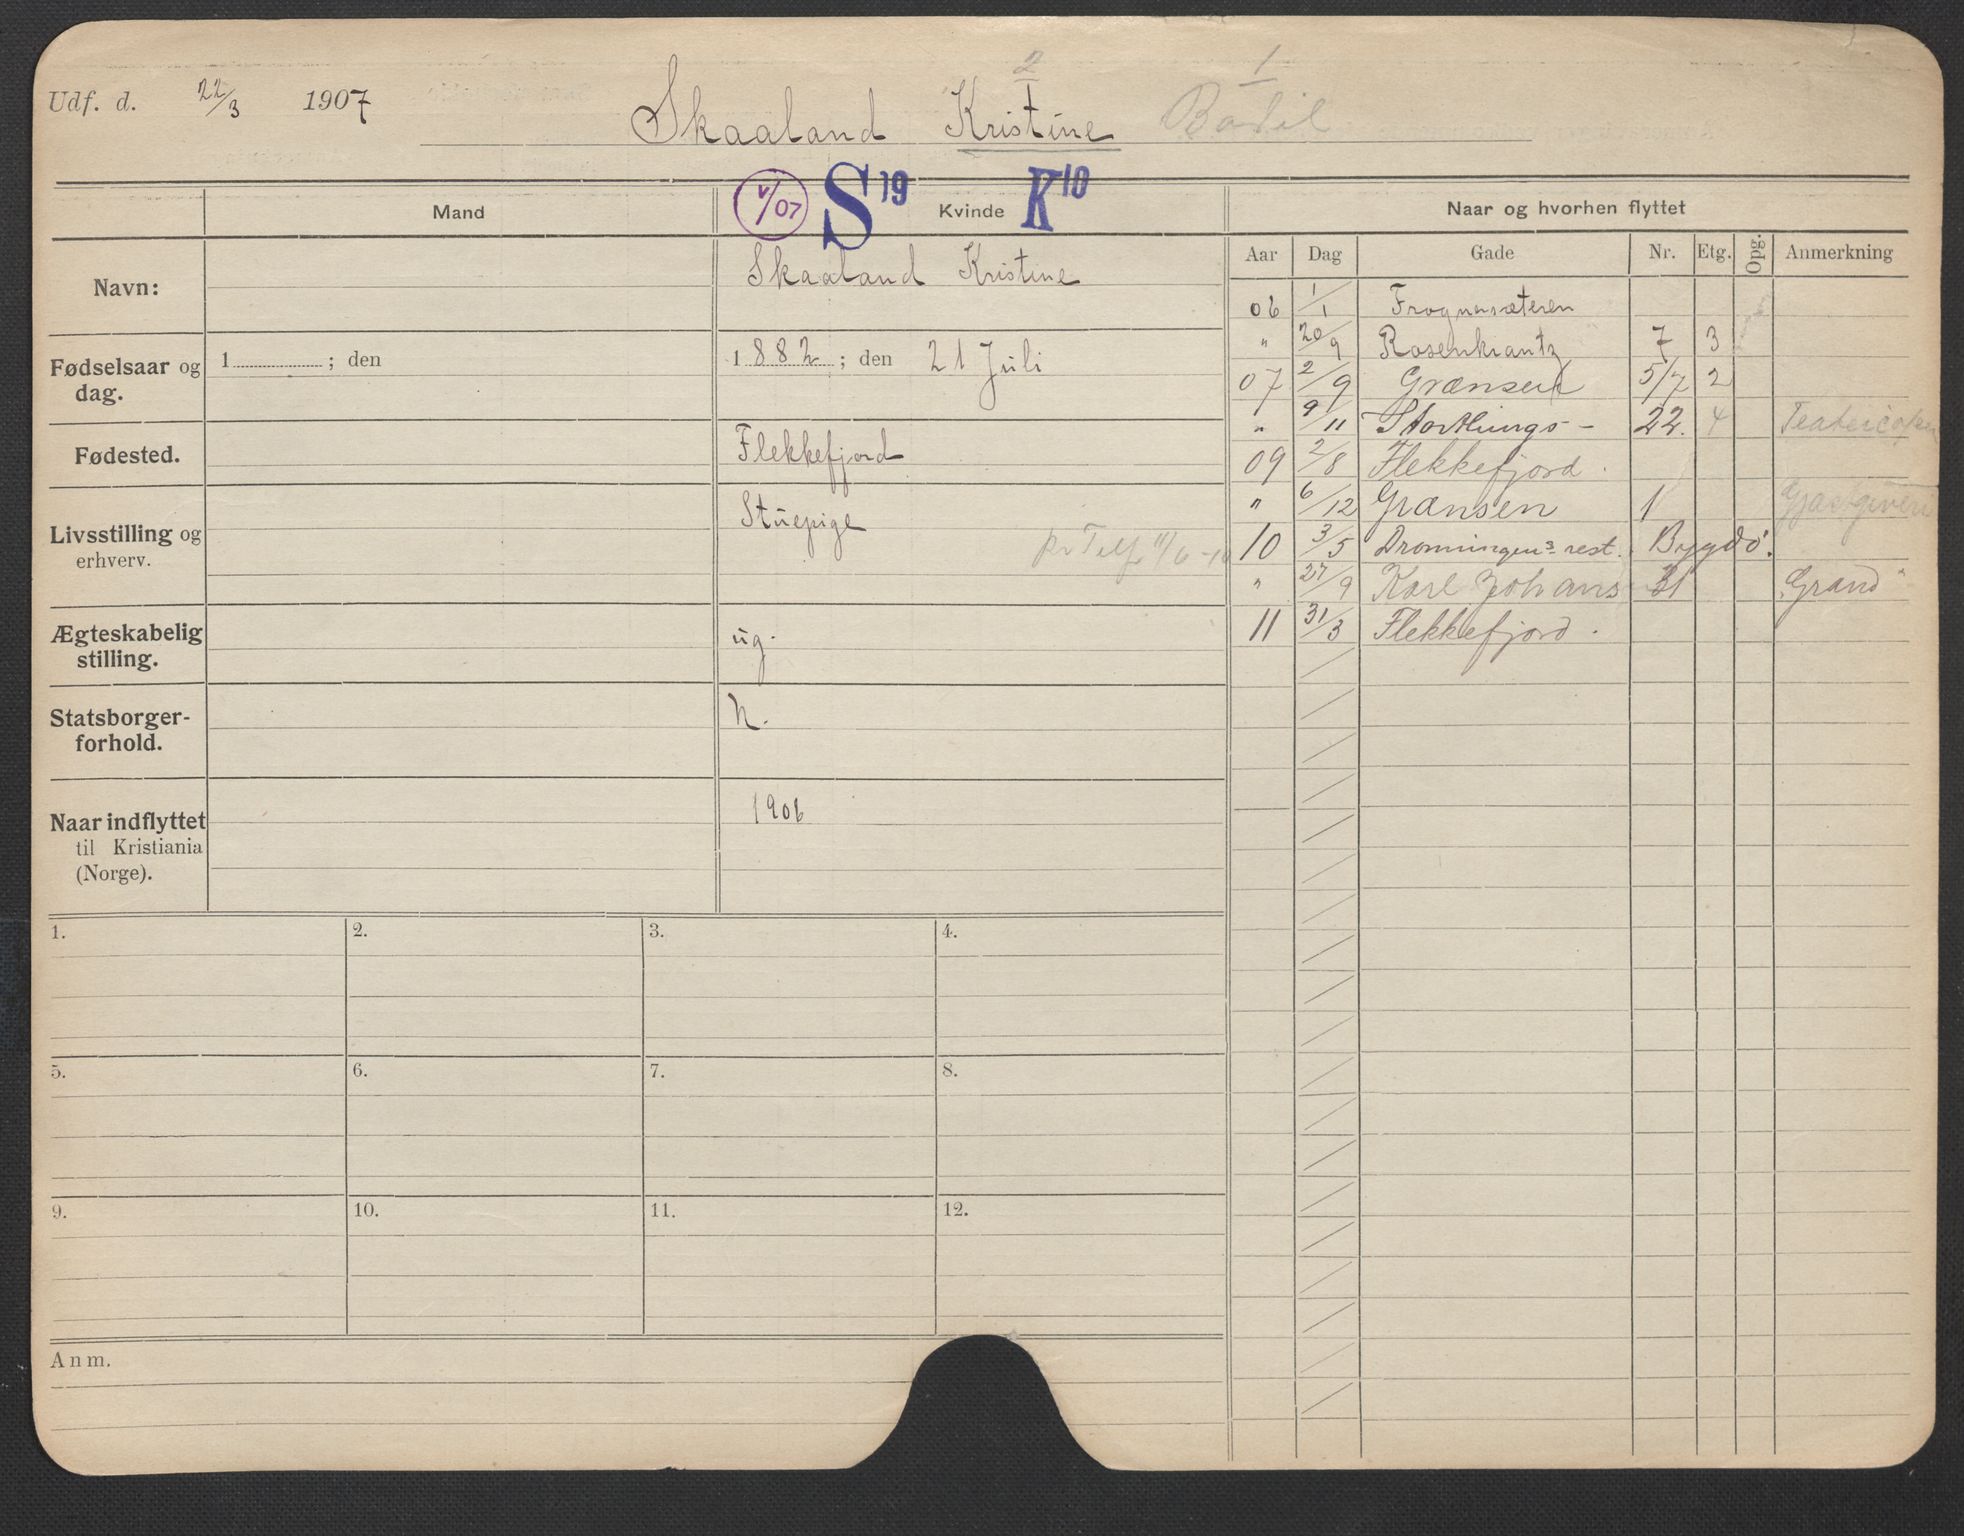 2 1
Udf. d. 22/3 1907 Skaaland Kristine Bodil
Mand
V/07 S19 Kvinde K10
Naar og hvorhen flyttet
Aar Dag Gade Nr. Etg. Opg. Anmerkning
Navn: Skaaland Kristine
Fødselsaar og dag. 1 ; den 1882 ; den 21 Juli
Fødested. Flekkefjord
Livsstilling og erhverv. Stuepige
pr Telf 11/6-10
Ægteskabelig stilling. ug.
Statsborger-forhold. N.
Naar indflyttet til Kristiania (Norge). 1906
06 1/1 Frognersæteren
" 20/9 Rosenkrantz 7 3
07 2/9 Grænsen 5/7 2
" 9/11 Storthings- 22. 4
09 2/8 Flekkefjord.
" 6/12 Grænsen 1 Gjæstgiveri
10 3/5 Dronningens rest. Bygdö.
" 27/9 Karl Johans 31 "Grand"
11 31/3 Flekkefjord.
1. 2. 3. 4.
5. 6. 7. 8.
9. 10. 11. 12.
Anm.